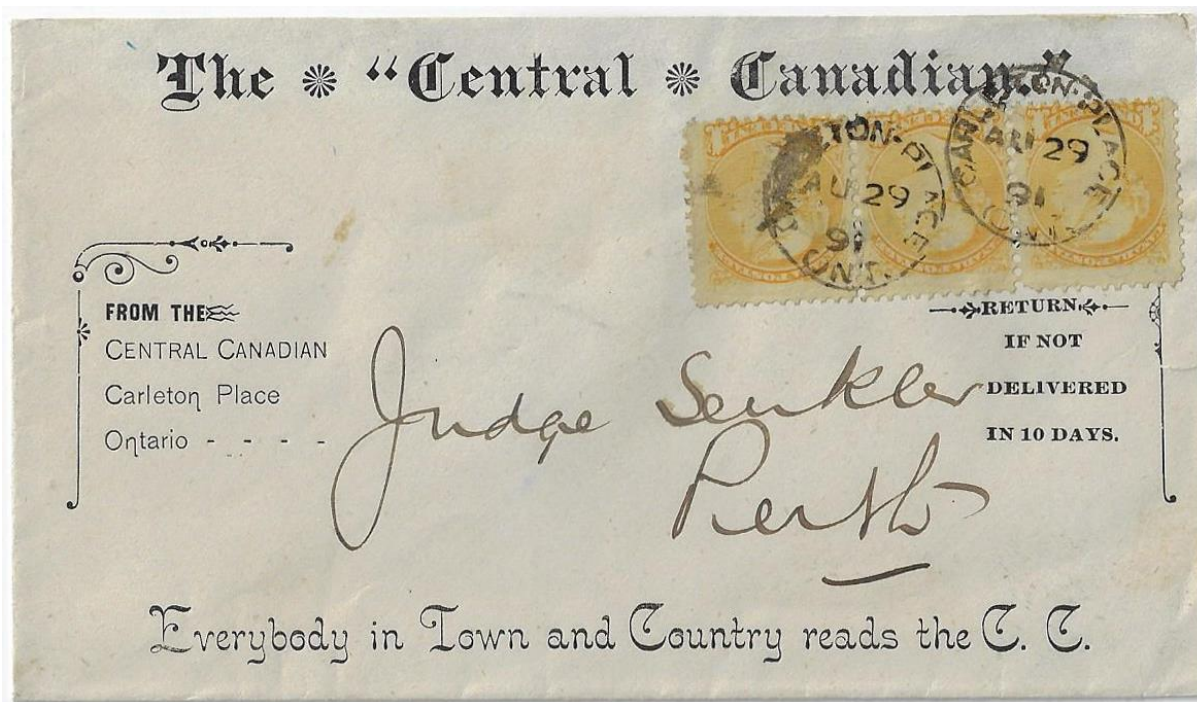 The "Central Canadian."
CARLETON-PLACE
AU 29
91
ONT.
CARLETON-PLACE
AU 29
91
ONT.
FROM THE
CENTRAL CANADIAN
Carleton Place
Ontario - - - -
RETURN
IF NOT
DELIVERED
IN 10 DAYS.
Judge Senkler
Perth
Everybody in Town and Country reads the C. C.